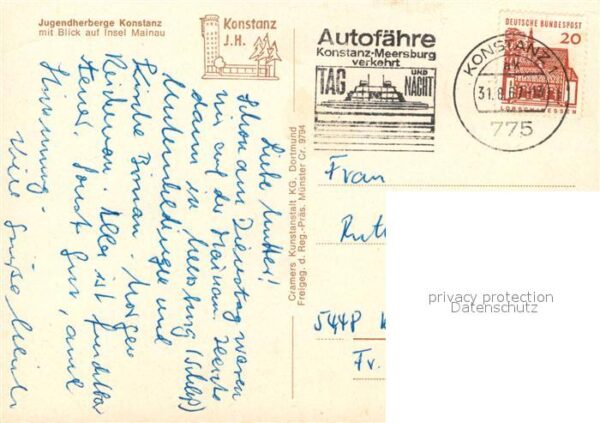 Jugendherberge Konstanz
mit Blick auf Insel Mainau
Konstanz
J.H.
Autofähre
Konstanz-Meersburg
verkehrt
TAG UND NACHT
KONSTANZ 1
31.8.67
775
DEUTSCHE BUNDESPOST
20
LORSCH/HESSEN
Liebe Mutter!
Schon am Dienstag waren
wir auf der Mainau. Heute
dann in Meersburg (Schloß)
Unteruhldingen und
Kirche Birnau. Morgen
Reichenau. Alles ist furchtbar
teuer. Sonst gut, auch
Stimmung.
Viele Grüße
Cramers Kunstanstalt KG. Dortmund
Freigeg. d. Reg.-Präs. Münster Cr. 9794
Frau
Ruth
544
Fr.
privacy protection
Datenschutz